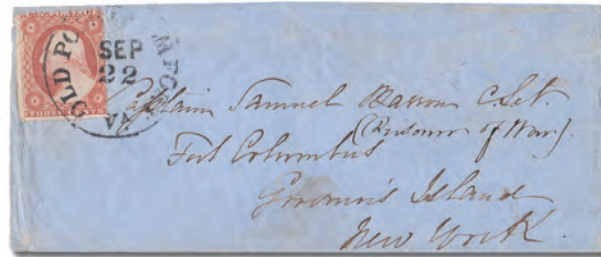 OLD PO M FORT VA
SEP
22
Captain Samuel Barron C.S.A.
(Prisoner of War).
Fort Columbus
Governor's Island
New York.